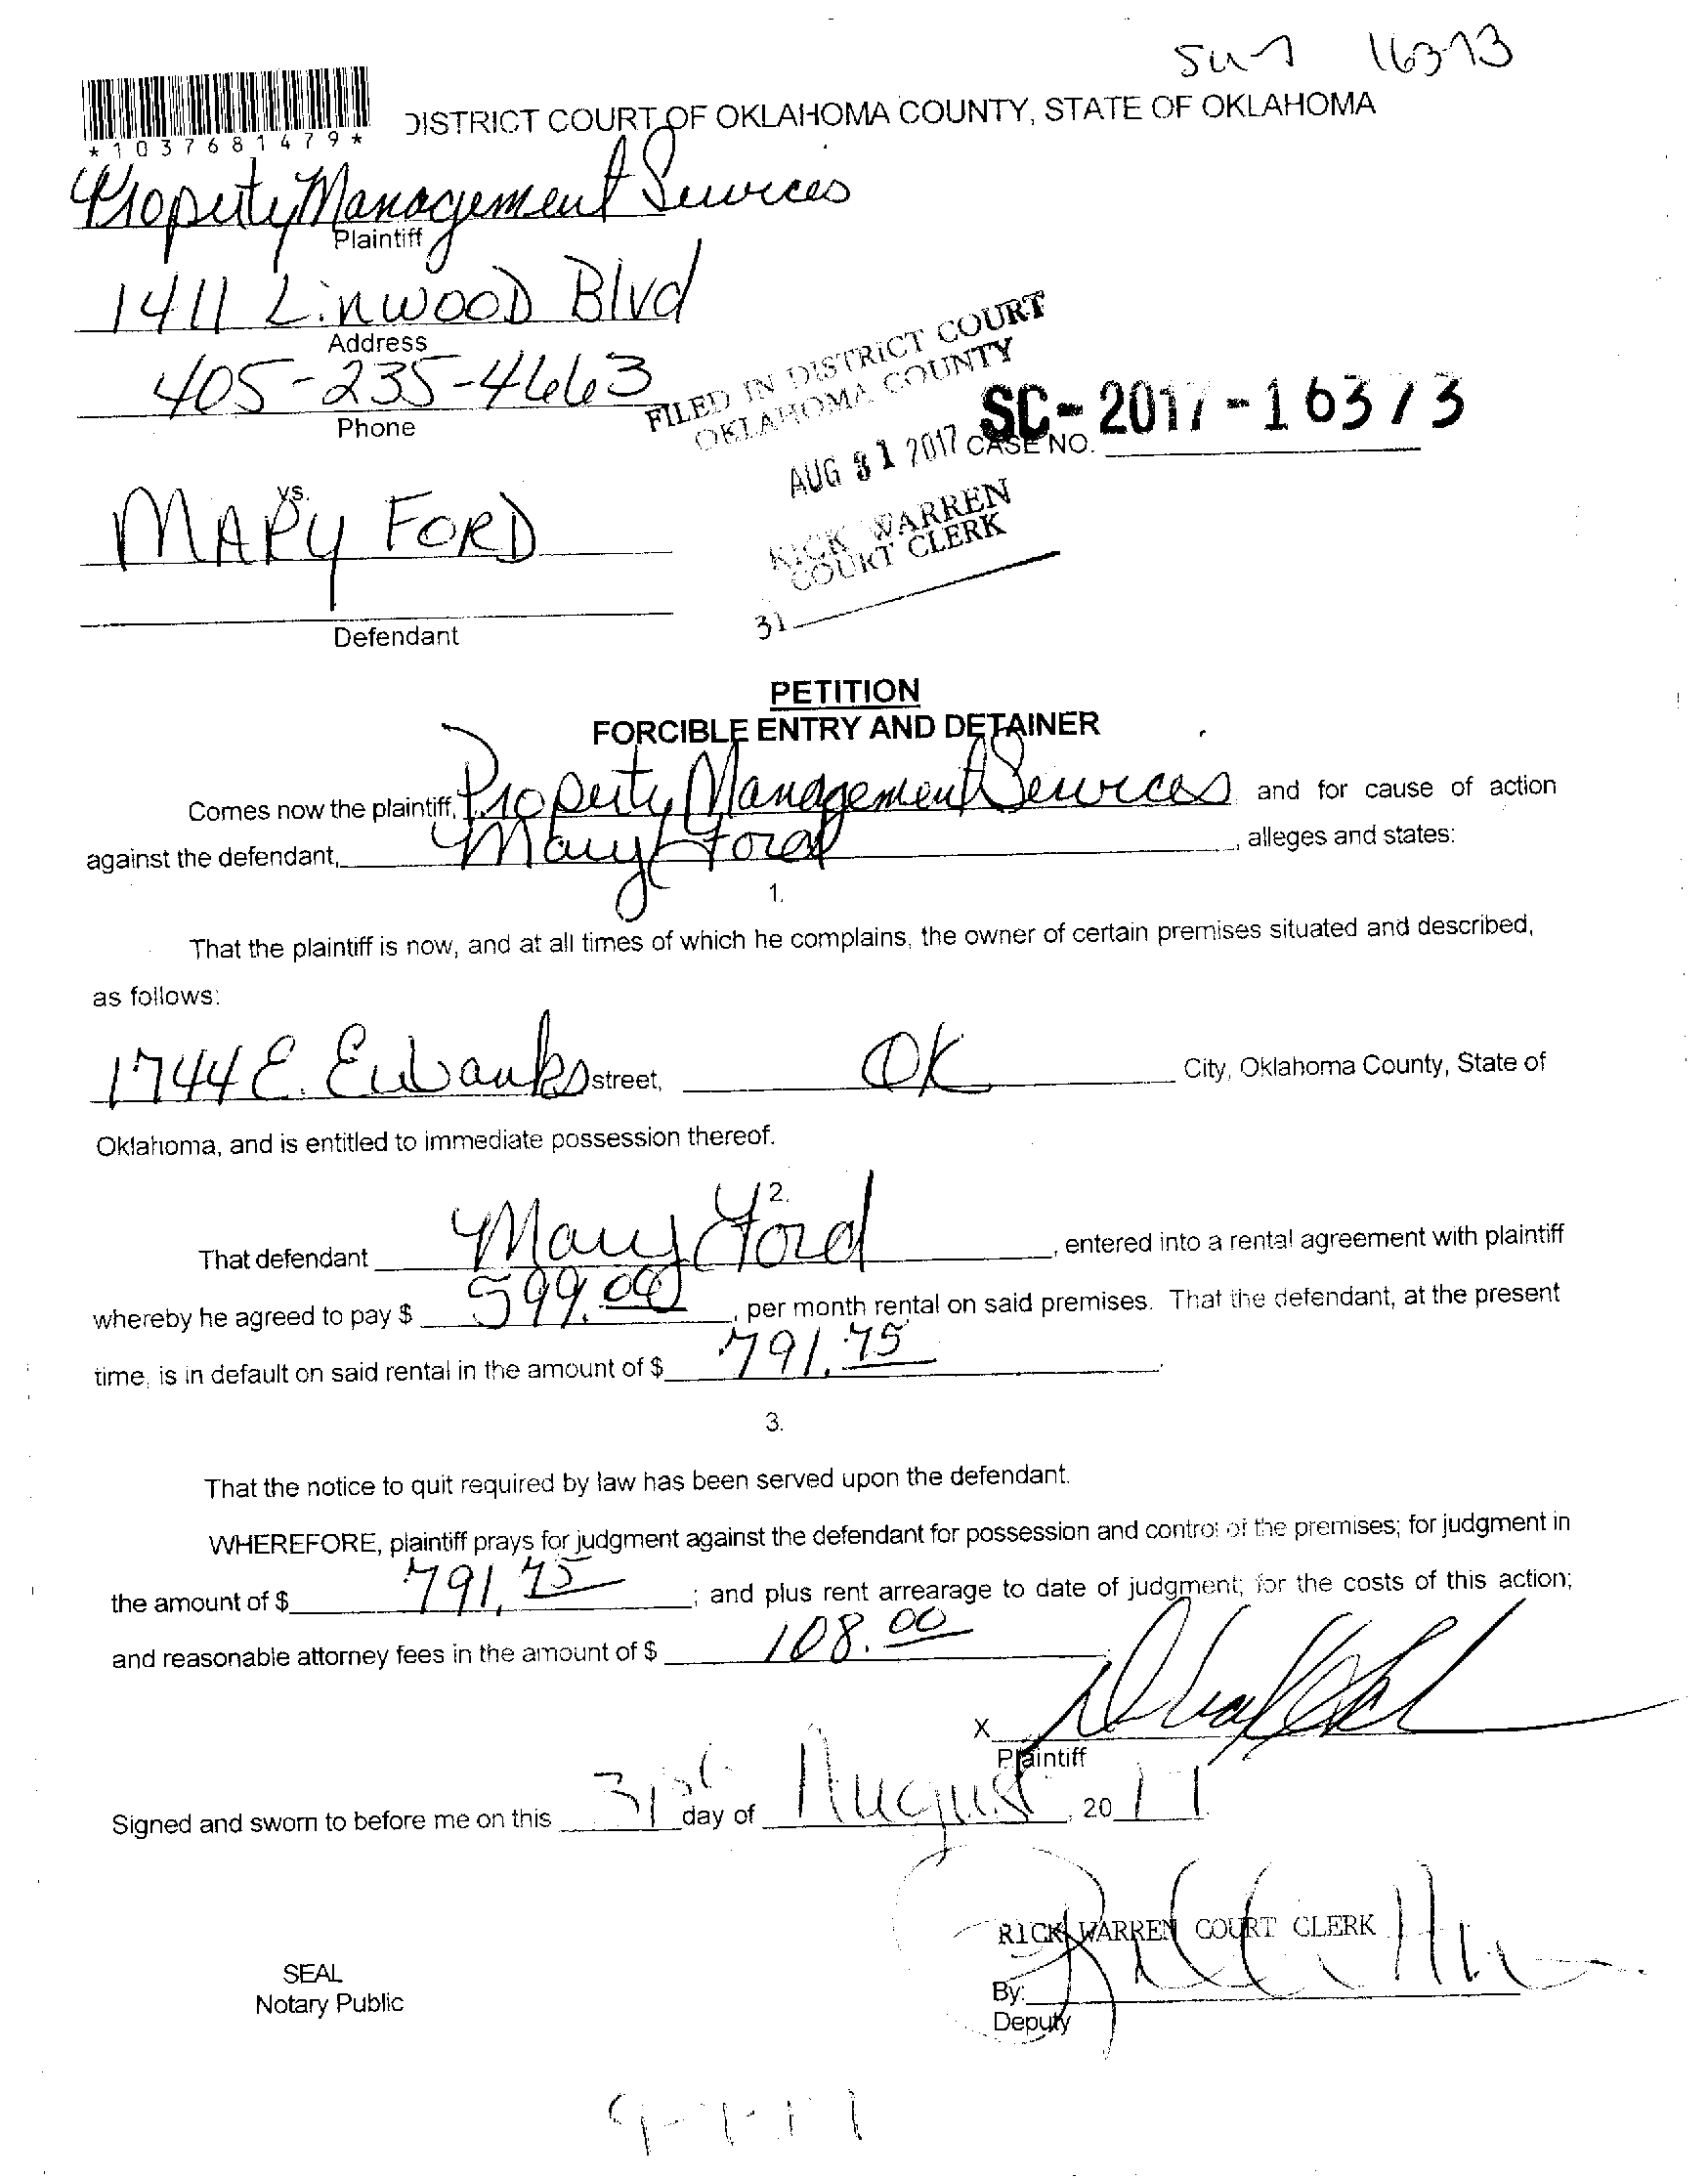 16373
*1037681479*
DISTRICT COURT OF OKLAHOMA COUNTY, STATE OF OKLAHOMA
Property Management Services
Plaintiff
1411 Linwood Blvd
Address
405-235-4663
Phone
FILED IN DISTRICT COURT
OKLAHOMA COUNTY
AUG 31 2017
SC-2017-16373
CASE NO.
RICK WARREN
COURT CLERK
31
vs.
MARY FORD
Defendant
PETITION
FORCIBLE ENTRY AND DETAINER
Comes now the plaintiff, Property Management Services and for cause of action
against the defendant, Mary Ford, alleges and states:
1.
That the plaintiff is now, and at all times of which he complains, the owner of certain premises situated and described,
as follows:
1744 E. Eubanks street, OK City, Oklahoma County, State of
Oklahoma, and is entitled to immediate possession thereof.
2.
That defendant Mary Ford, entered into a rental agreement with plaintiff
whereby he agreed to pay $ 599.00, per month rental on said premises. That the defendant, at the present
time, is in default on said rental in the amount of $ 791.75.
3.
That the notice to quit required by law has been served upon the defendant.
WHEREFORE, plaintiff prays for judgment against the defendant for possession and control of the premises; for judgment in
the amount of $ 791.75; and plus rent arrearage to date of judgment; for the costs of this action;
and reasonable attorney fees in the amount of $ 108.00
X
Plaintiff
Signed and sworn to before me on this 31st day of August, 2017.
RICK WARREN COURT CLERK
SEAL
Notary Public
By:
Deputy